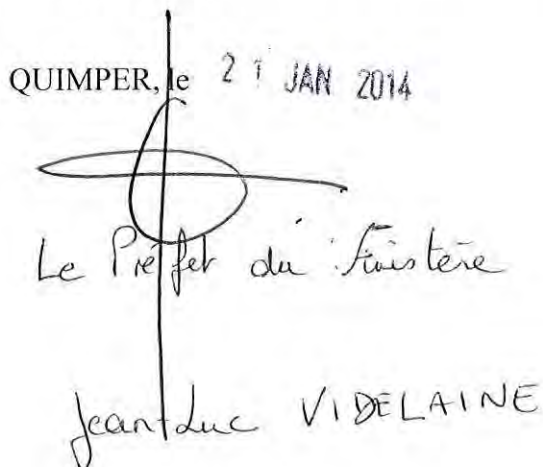 QUIMPER, le 21 JAN 2014
Le Préfet du Finistère
Jean-Luc VIDELAINE